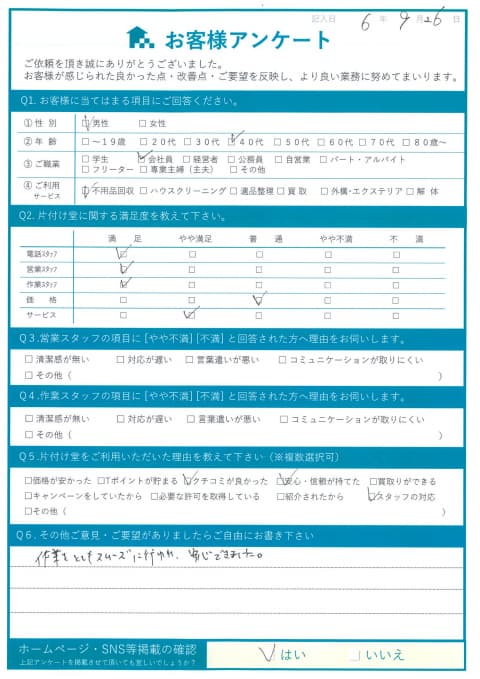 記入日 6 年 9 月 26 日
お客様アンケート
ご依頼を頂き誠にありがとうございました。
お客様が感じられた良かった点・改善点・ご要望を反映し、より良い業務に努めてまいります。
Q1. お客様に当てはまる項目にご回答ください。
① 性 別 ☑男性 □女性
② 年 齢 □～19歳 □20代 □30代 ☑40代 □50代 □60代 □70代 □80歳～
③ ご職業 □学生 ☑会社員 □経営者 □公務員 □自営業 □パート・アルバイト
□フリーター □専業主婦（主夫） □その他
④ ご利用サービス ☑不用品回収 □ハウスクリーニング □遺品整理 □買 取 □外構・エクステリア □解 体
Q2. 片付け堂に関する満足度を教えて下さい。
満 足 やや満足 普 通 やや不満 不 満
電話スタッフ ☑ □ □ □ □
営業スタッフ ☑ □ □ □ □
作業スタッフ ☑ □ □ □ □
価 格 □ □ ☑ □ □
サービス □ ☑ □ □ □
Q3.営業スタッフの項目に [やや不満] [不満] と回答された方へ理由をお伺いします。
□清潔感が無い □対応が遅い □言葉遣いが悪い □コミュニケーションが取りにくい
□その他（ ）
Q4.作業スタッフの項目に [やや不満] [不満] と回答された方へ理由をお伺いします。
□清潔感が無い □対応が遅い □言葉遣いが悪い □コミュニケーションが取りにくい
□その他（ ）
Q5.片付け堂をご利用いただいた理由を教えて下さい（※複数選択可）
□価格が安かった □Tポイントが貯まる ☑クチコミが良かった ☑安心・信頼が持てた □買取りができる
□キャンペーンをしていたから □必要な許可を取得している □紹介されたから ☑スタッフの対応
□その他（ ）
Q6.その他ご意見・ご要望がありましたらご自由にお書き下さい
作業もとてもスムーズに行われ、安心できました。
ホームページ・SNS等掲載の確認 ☑はい □いいえ
上記アンケートを掲載させて頂いても宜しいでしょうか？